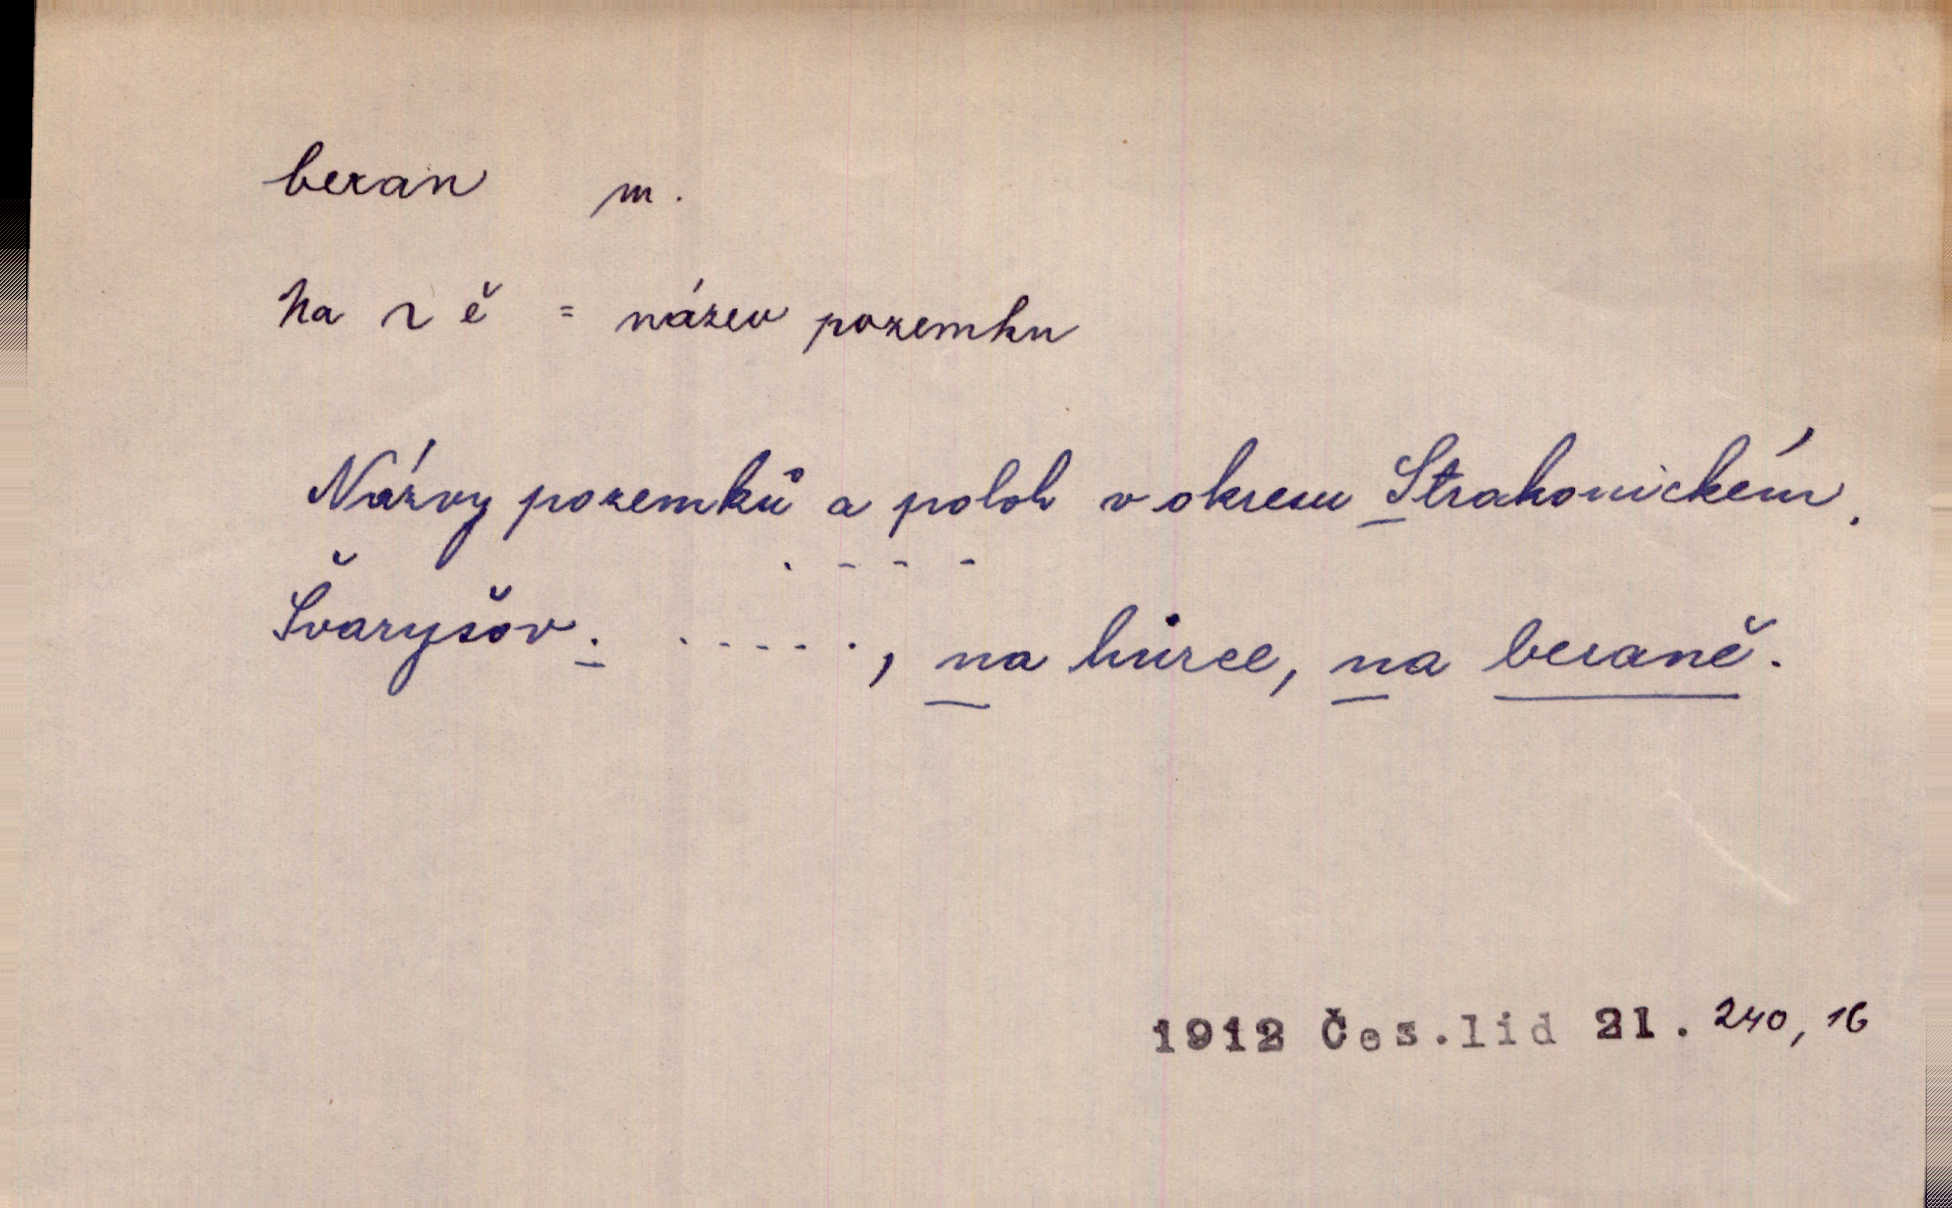 beran m.
Na ~ ě = název pozemku
Názvy pozemků a poloh v okresu Strakonickém.
. - - -
Švaryšov. . - - - - ., na hůrce, na beraně.
1912 Čes.lid 21. 240, 16